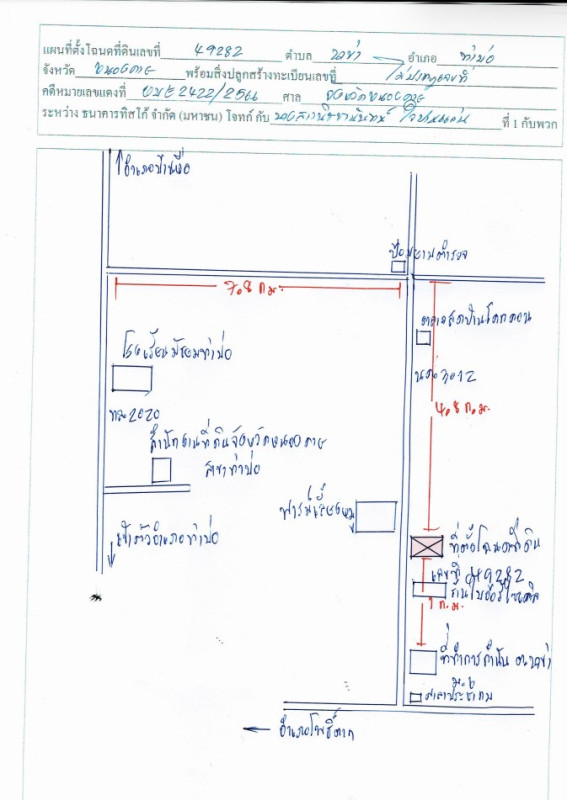 แผนที่ตั้งโฉนดที่ดินเลขที่ 49282 ตำบล นาข่า อำเภอ ท่าบ่อ
จังหวัด หนองคาย พร้อมสิ่งปลูกสร้างทะเบียนเลขที่ ไม่ปรากฏเลขที่
คดีหมายเลขแดงที่ ผบE2422/2566 ศาล จังหวัดหนองคาย
ระหว่าง ธนาคารทิสโก้ จำกัด (มหาชน) โจทก์ กับ ที่ 1 กับพวก
อำเภอ
ป้อมยามตำรวจ
7.8 ก.ม.
ตลาดสดบ้านโคกคอน
โรงเรียนมัธยมท่าบ่อ
4.8 ก.ม.
ทล 2020
สำนักงานที่ดินจังหวัดหนองคาย
สาขาท่าบ่อ
ฟาร์มเลี้ยงหมู
เข้าตัวอำเภอท่าบ่อ
ที่ตั้งโฉนดที่ดิน
เลขที่ 49282
1 ก.ม.
ที่ทำการกำนัน ต.นาข่า
ม.6
ศาลาประชาคม
← อำเภอโพธิ์ตาก